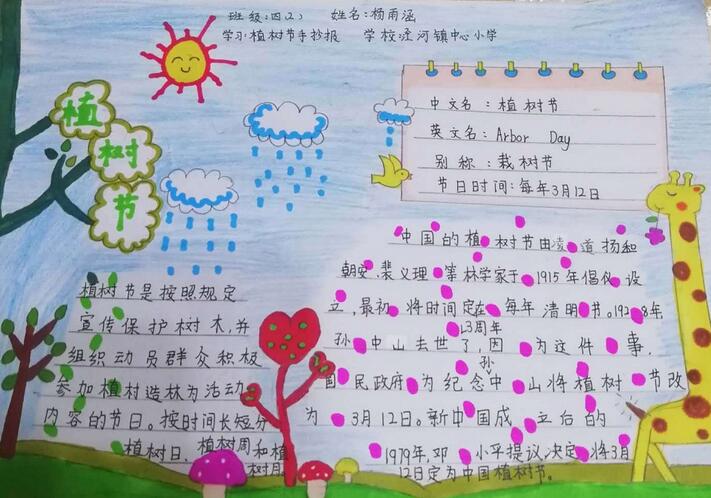 班级:四(2) 姓名:杨雨涵
学习:植树节手抄报 学校:泾河镇中心小学
植
树
节
中文名:植树节
英文名:Arbor Day
别称:栽树节
节日时间:每年3月12日
植树节是按照规定
宣传保护树木,并
组织动员群众积极
参加植村造林为活动
内容的节日。按时间长短分
植树日、植树周和植
树月
中国的植树节由凌道扬和
朝安、裴义理等林学家于1915年倡仪设
立,最初将时间定在每年清明节。1928年
孙中山去世了,因为这件事.
3周年
国民政府为纪念中山将植树节改
孙
为3月12日。新中国成立后的
1979年,邓小平提议,决定将3月
12日定为中国植树节。